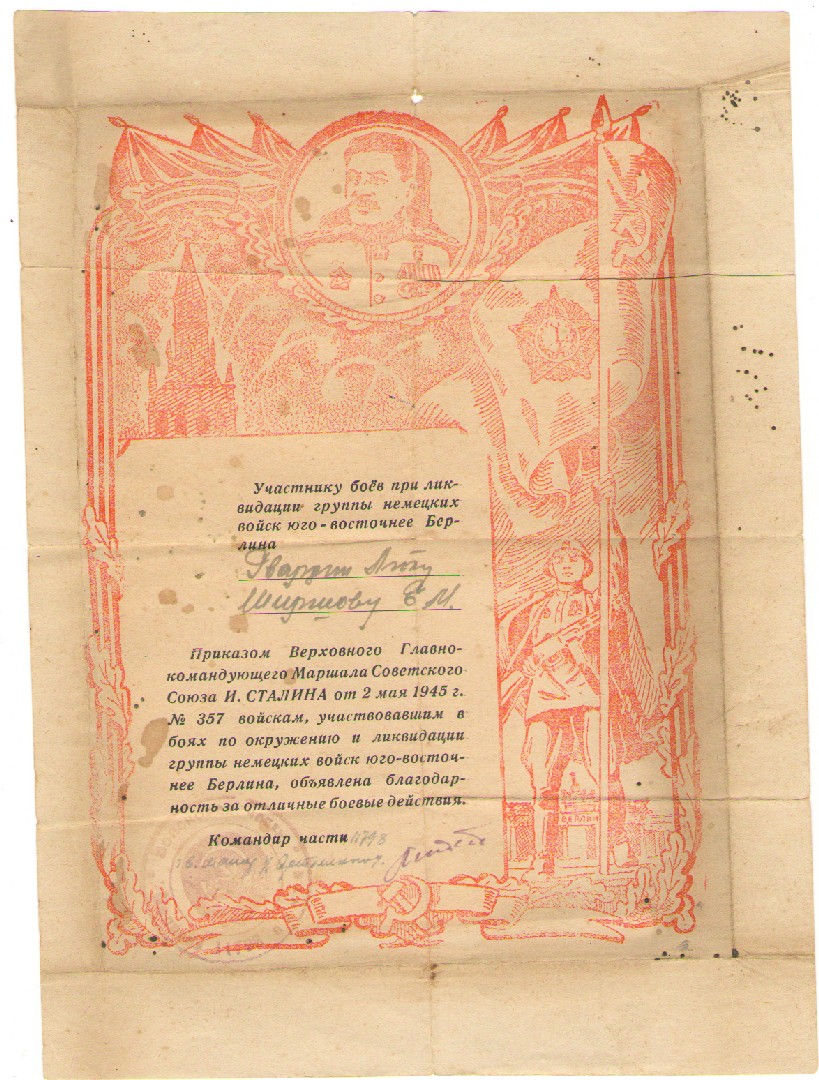 Участнику боёв при лик-
видации группы немецких
войск юго-восточнее Бер-
лина
Гвардии
Ширшову Е М.
Приказом Верховного Главно-
командующего Маршала Советского
Союза И. СТАЛИНА от 2 мая 1945 г.
№ 357 войскам, участвовавшим в
боях по окружению и ликвидации
группы немецких войск юго-восточ-
нее Берлина, объявлена благодар-
ность за отличные боевые действия.
Командир части
БЕРЛИН